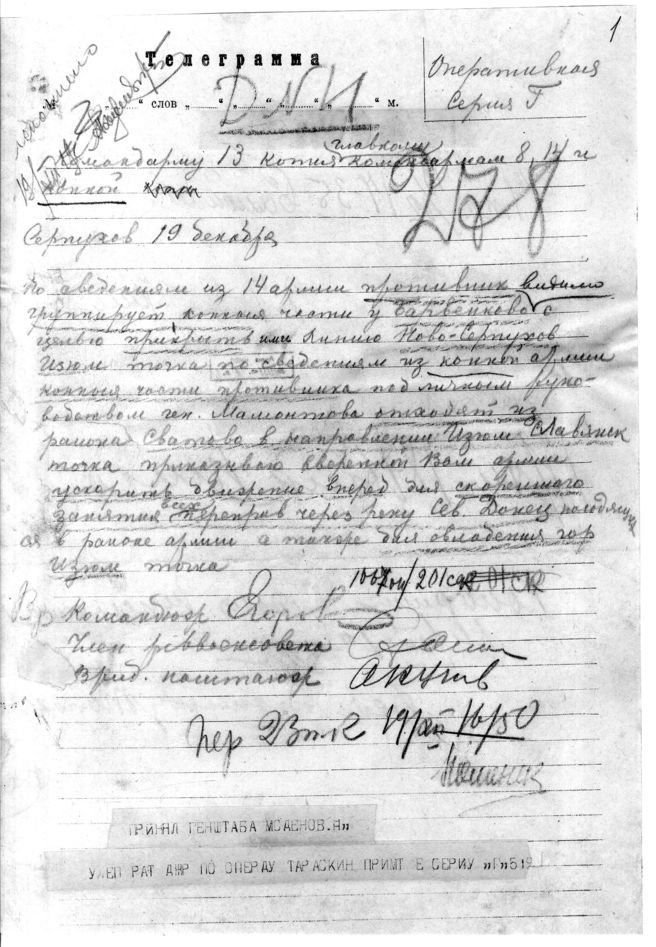 1
Телеграмма
Оперативная
Серия Г
№ " слов " " " " м.
Командарму 13 копия главкому командармам 8, 14 и
конной
278
Серпухов 19 декабря
По сведениям из 14 армии противник видимо
группирует конныя части у Барвенково с
целью прикрыть ими линию Ново-Серпухов
Изюм точка по сведениям из конной армии
конныя части противника под личным руко-
водством ген. Мамонтова отходят из
района Сватово в направлении Изюм Славянск
точка приказываю вверенной Вам армии
ускорить движение вперед для скорейшего
занятия всех переправ через реку Сев. Донец находящих
ся в районе армии а также для овладения гор
Изюм точка
Вр Командюж Егоров
Член реввоенсовета
Врид. наштаюж
пер 19/XII 16/50
ПРИНЯЛ ГЕНШТАБА
ПО ОПЕРАУ ТАРАСКИН ПРИМТ Е СЕРИУ „Г"